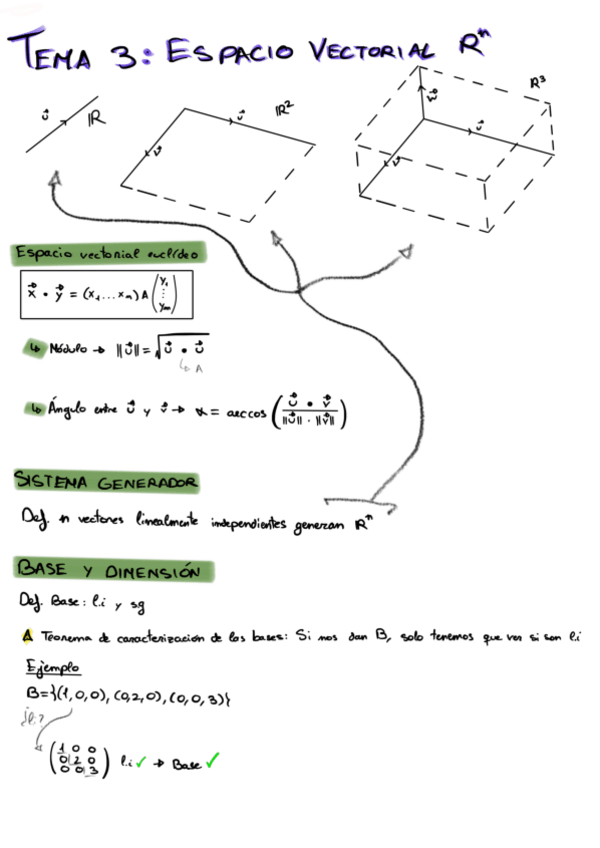 TEMA 3: ESPACIO VECTORIAL ℝⁿ
u⃗ ℝ
v⃗ u⃗ ℝ²
w⃗ v⃗ u⃗ ℝ³
Espacio vectorial euclídeo
x⃗ • y⃗ = (x₁...xₙ) A (y₁ ⋮ yₙ)
↳ Módulo → ||u⃗|| = √(u⃗ • u⃗)
↳ A
↳ Ángulo entre u⃗ y v⃗ → α = arccos (u⃗ • v⃗ / ||u⃗|| · ||v⃗||)
SISTEMA GENERADOR
Def. n vectores linealmente independientes generan ℝⁿ
BASE Y DIMENSIÓN
Def. Base: l.i y sg
A Teorema de caracterización de las bases: Si nos dan B, solo tenemos que ver si son li
Ejemplo
B={(1,0,0), (0,2,0), (0,0,3)}
¿li?
1 0 0
0 2 0
0 0 3
l.i ✓ → Base ✓